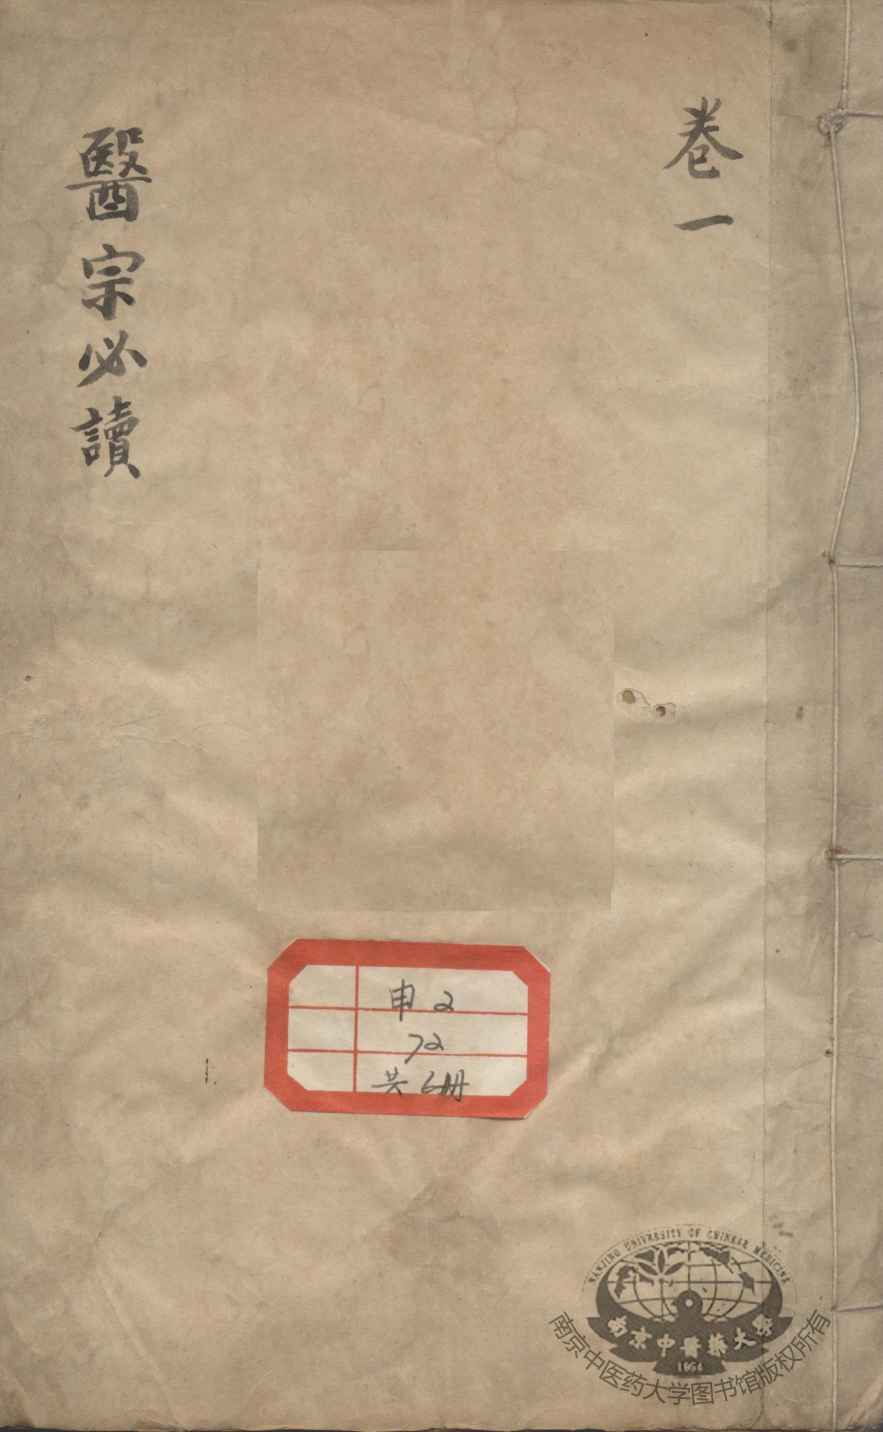 卷一
醫宗必讀
申2
72
共6册
NANJING UNIVERSITY OF CHINESE MEDICINE
南京中醫藥大學
1954
南京中医药大学图书馆版权所有